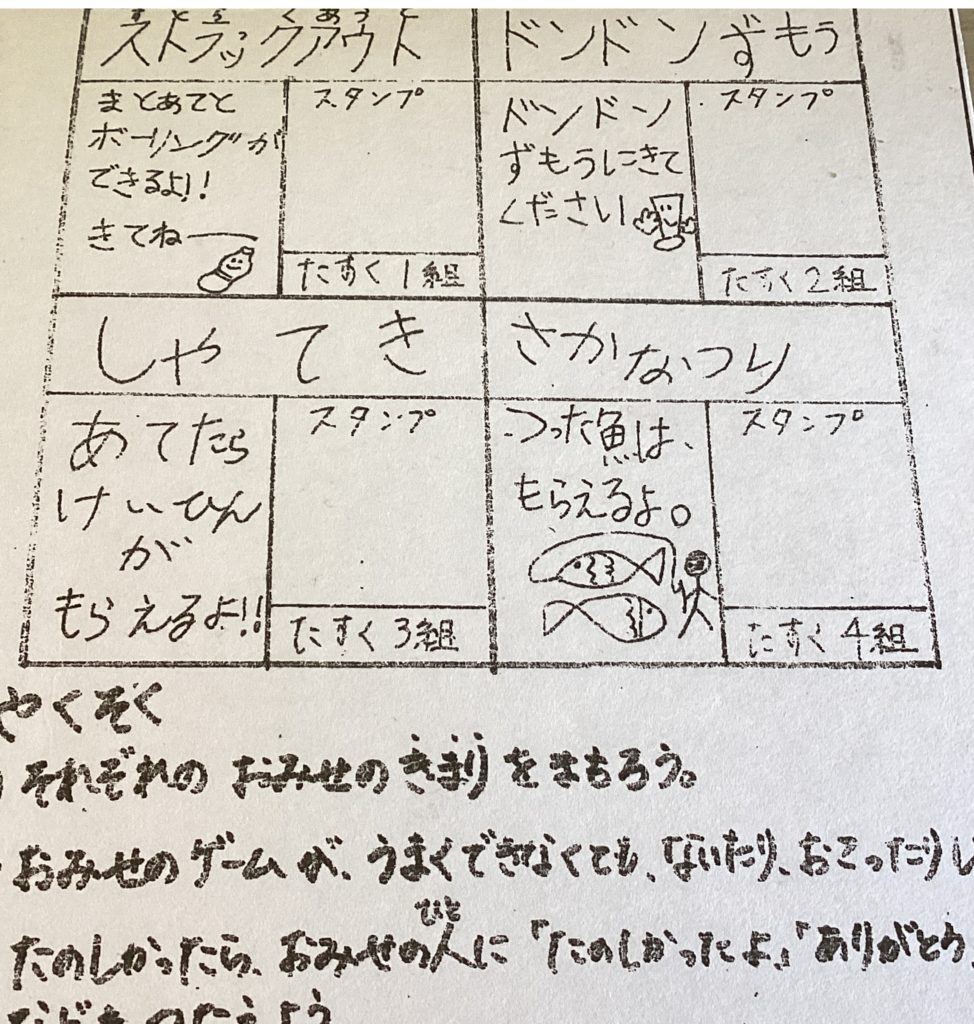 すとらっくあうと
ストラックアウト
ドンドンずもう
まとあてと
ボーリングが
できるよ!!
きてねー
スタンプ
たすく1組
ドンドン
ずもうにきて
ください
スタンプ
たすく2組
しゃてき
さかなつり
あてたら
けいひん
が
もらえるよ!!
スタンプ
たすく3組
つった魚は、
もらえるよ。
スタンプ
たすく4組
やくそく
それぞれの おみせのきまりをまもろう。
おみせのゲームが、うまくできなくても、ないたり、おこったりし
ひと
たのしかったら、おみせの人に「たのしかったよ」「ありがとう」
などをつたえよう